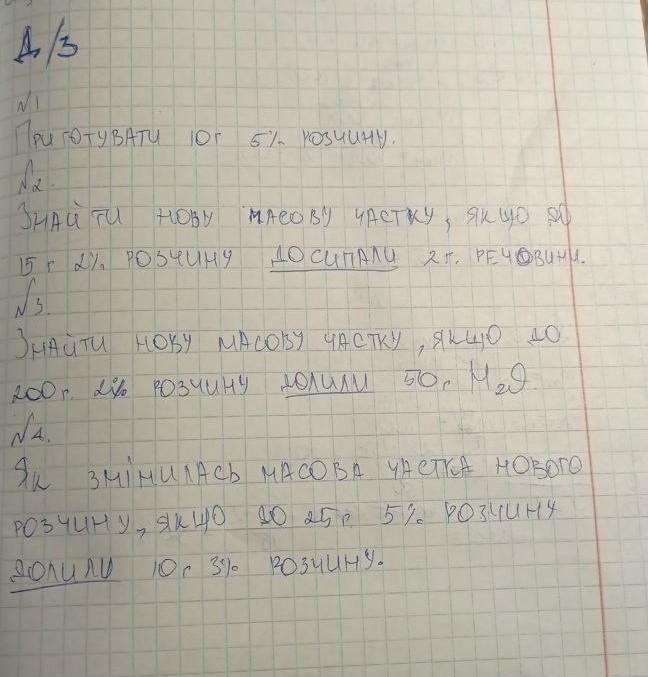 Д/З
№1
ПРИГОТУВАТИ 10г 5% РОЗЧИНУ.
№2.
ЗНАЙТИ НОВУ МАСОВУ ЧАСТКУ, ЯКЩО ДО
15 г 2% РОЗЧИНУ ДОСИПАЛИ 2 г. РЕЧОВИНИ.
№3.
ЗНАЙТИ НОВУ МАСОВУ ЧАСТКУ, ЯКЩО ДО
200г. 2% РОЗЧИНУ ДОЛИЛИ 50г H₂O.
№4.
ЯК ЗМІНИЛАСЬ МАСОВА ЧАСТКА НОВОГО
РОЗЧИНУ, ЯКЩО ДО 25 г 5% РОЗЧИНУ
ДОЛИЛИ 10г 3% РОЗЧИНУ.